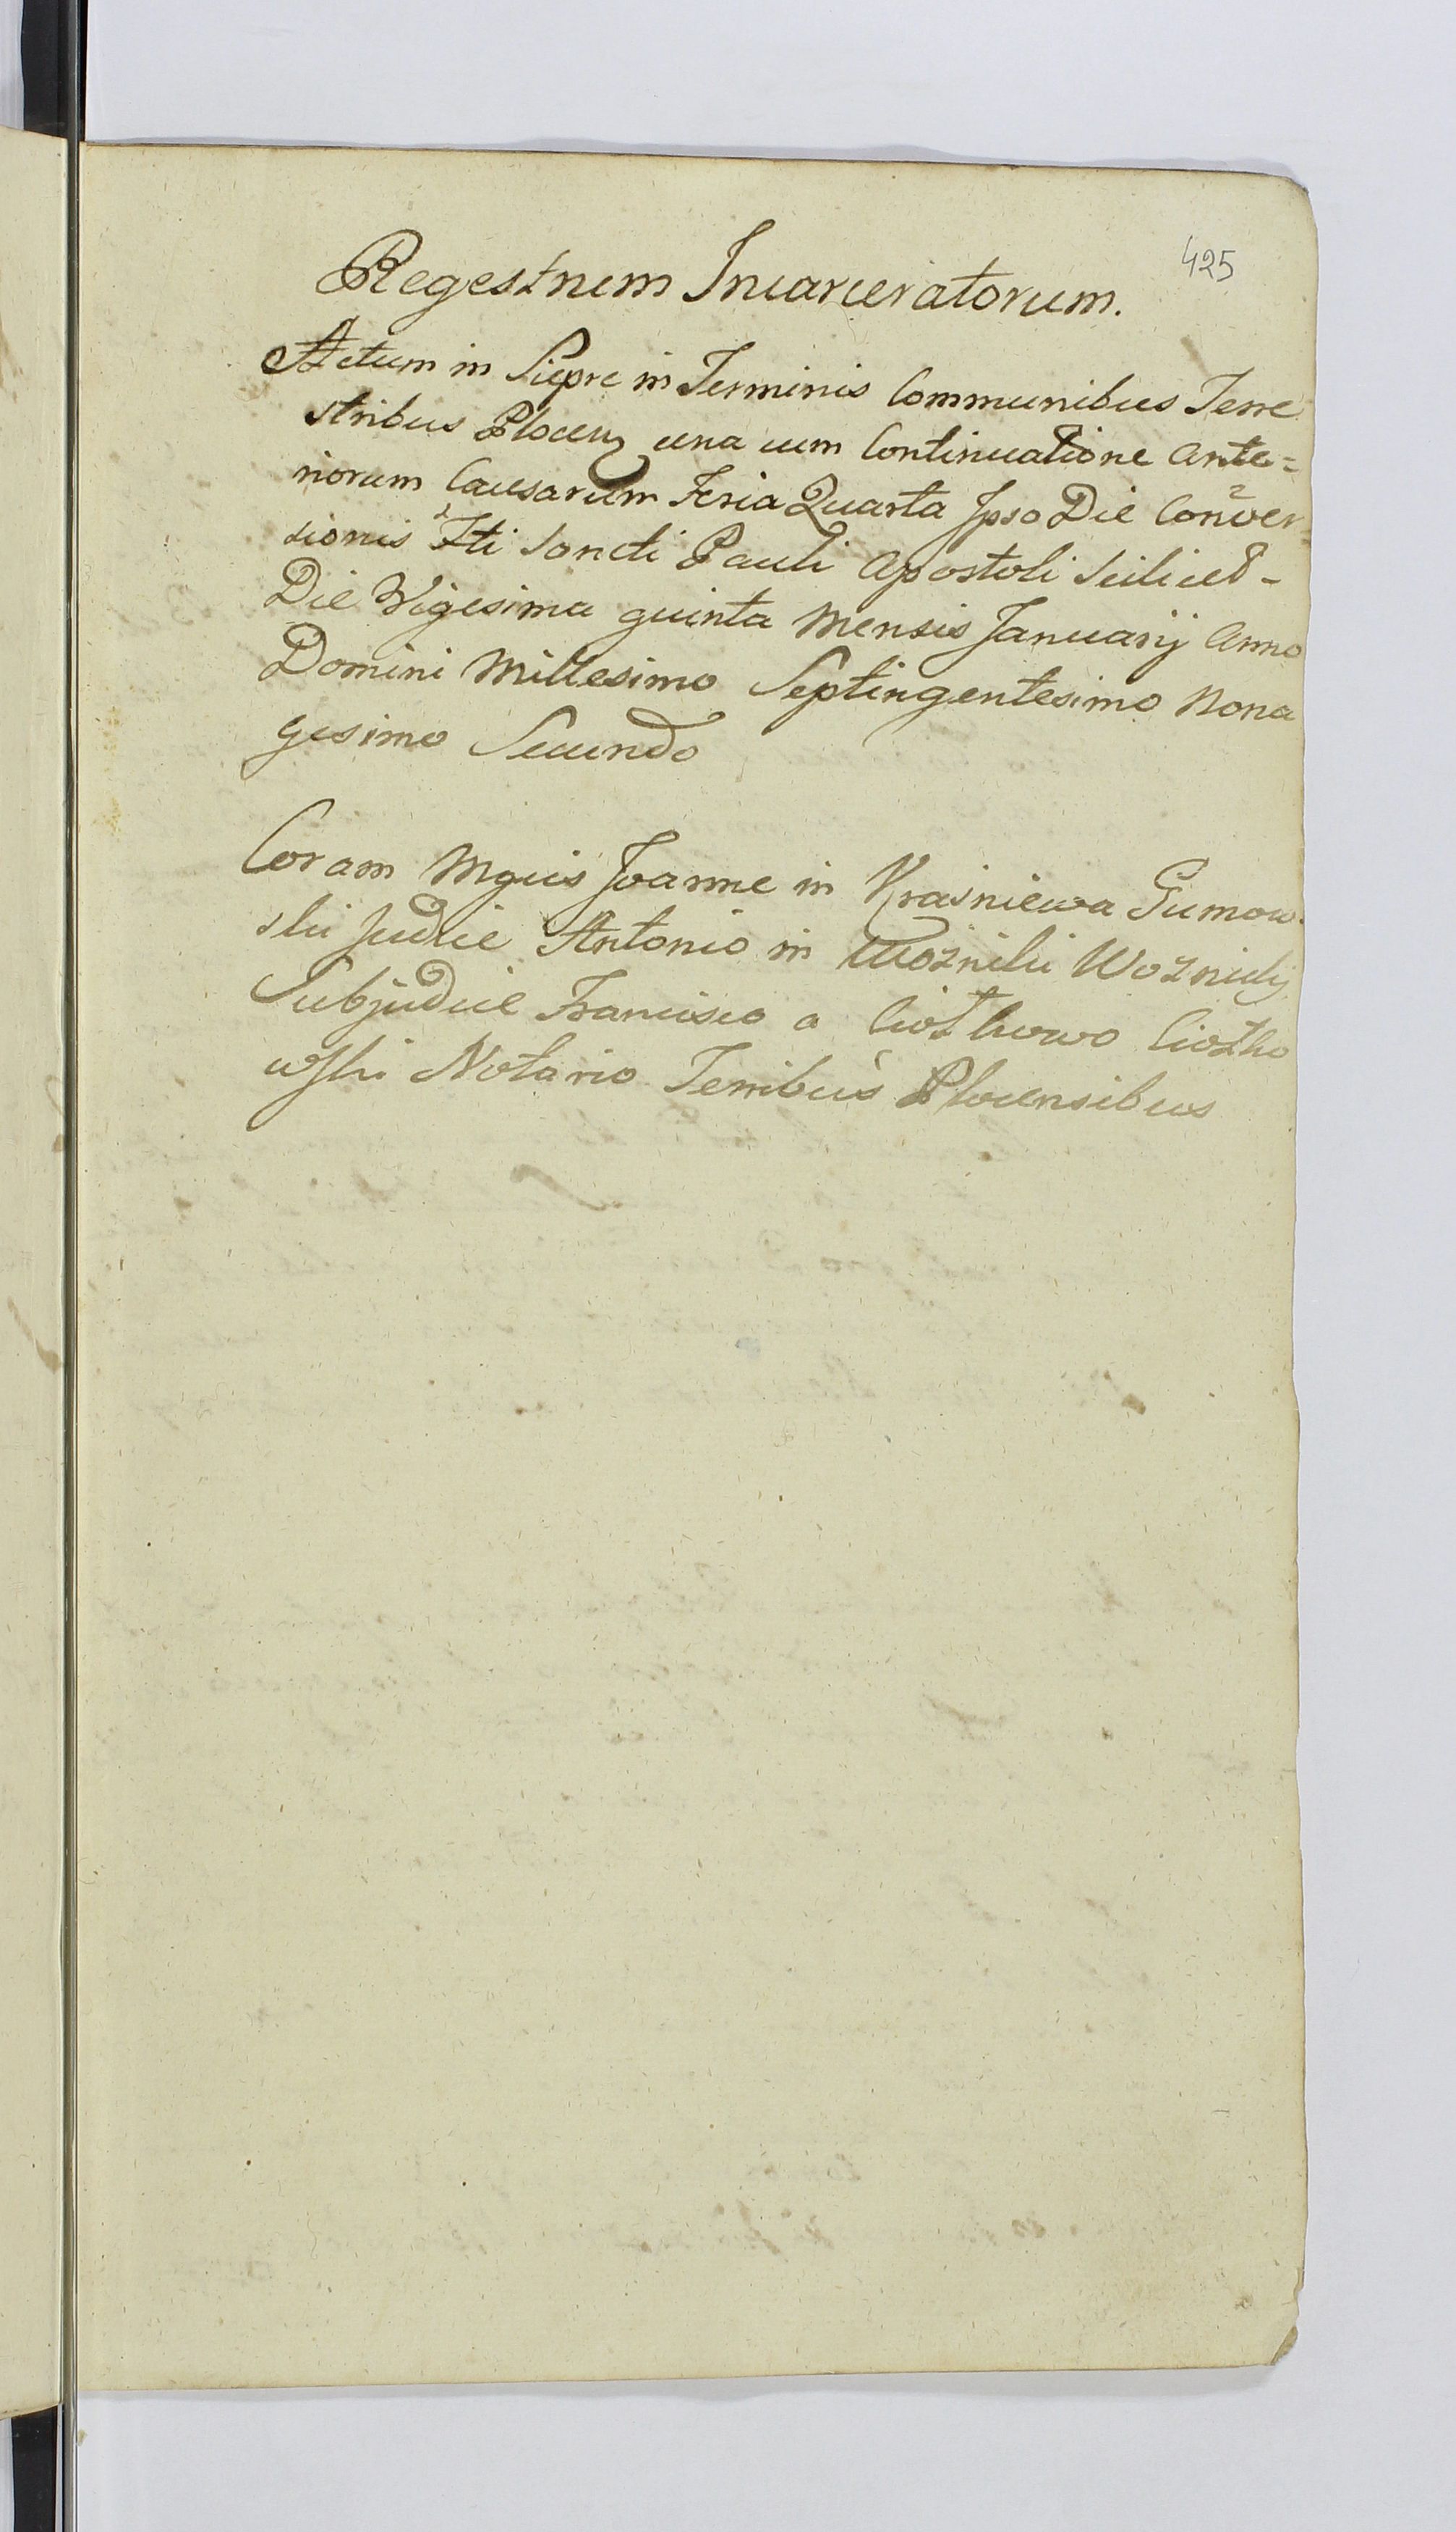 425
Regestrum Incarceratorum.
Actum in Siepre in Terminis Communibus Terre
stribus Plocen una cum Continuatione Ante=
riorum Causarum Feria Quarta Ipso Die Conver=
sionis Fti Sancti Pauli Apostoli Scilicet -
Die Wigesima quinta Mensis Januarij Anno
Domini Millesimo Septingentesimo Nona
gesimo Secundo
Coram Mgcis Joanne in Krasniewa Gumow
ski Judice Antonio in Woznicki Woznicky
Subjudice Francisco a Ciotkowo Ciotko
wski Notario Terribus Plocensibus